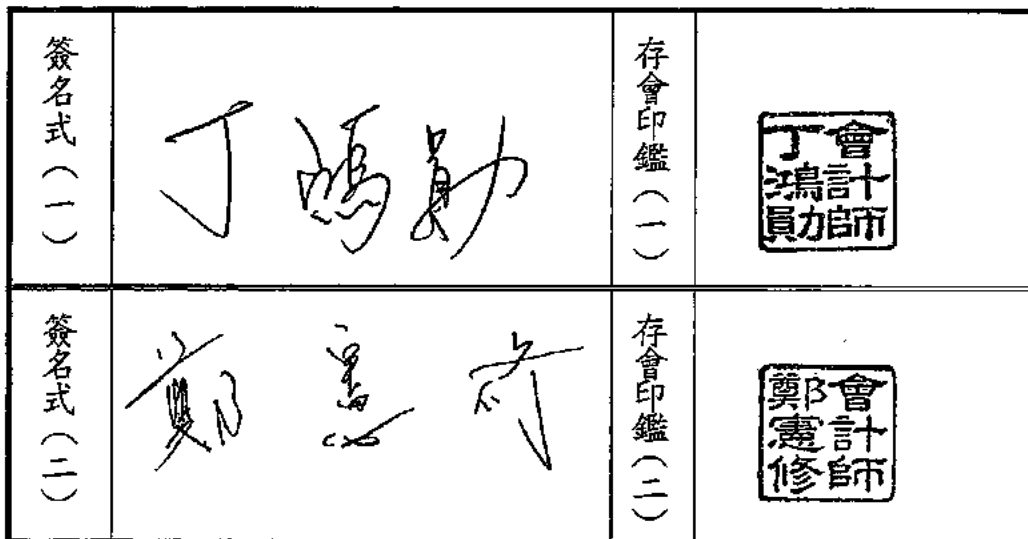 簽名式（一）
丁鴻勛
存會印鑑（一）
會計師
丁鴻勛
簽名式（二）
鄭憲修
存會印鑑（二）
會計師
鄭憲修